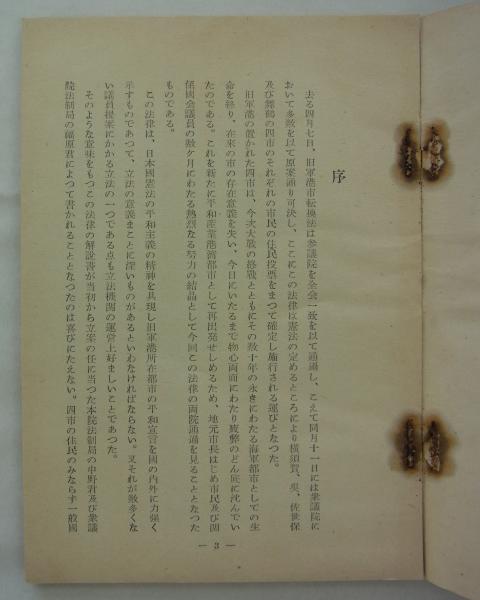 序
去る四月七日、旧軍港市転換法は参議院を全会一致を以て通過し、こえて同月十一日には衆議院に
おいて多数を以て原案通り可決し、ここにこの法律は憲法の定めるところにより横須賀、呉、佐世保
及び舞鶴の四市のそれぞれの市民の住民投票をまつて確定し施行される運びとなつた。
旧軍港の置かれた四市は、今次大戦の終戦とともにその数十年の永きにわたる海軍都市としての生
命を終り、在来の市の存在意義を失い、今日にいたるまで物心両面にわたり疲弊のどん底に沈んでい
たのである。これを新たに平和産業港湾都市として再出発せしめるため、地元市長はじめ市民及び関
係國会議員の数ケ月にわたる熱烈なる努力の結晶として今回この法律の両院通過を見ることとなつた
ものである。
この法律は、日本國憲法の平和主義の精神を具現し旧軍港所在都市の平和宣言を國の内外に力強く
示すものであつて、立法の意義まことに深いものがあるといわなければならない。又それが数多くな
い議員提案にかかる立法の一つである点も立法機関の運営上好ましいことであつた。
そのような意味をもつこの法律の解説書が当初から立案の任に当つた本院法制局の中野君及び衆議
院法制局の福原君によつて書かれることとなつたのは喜びにたえない。四市の住民のみならず一般國
— 3 —